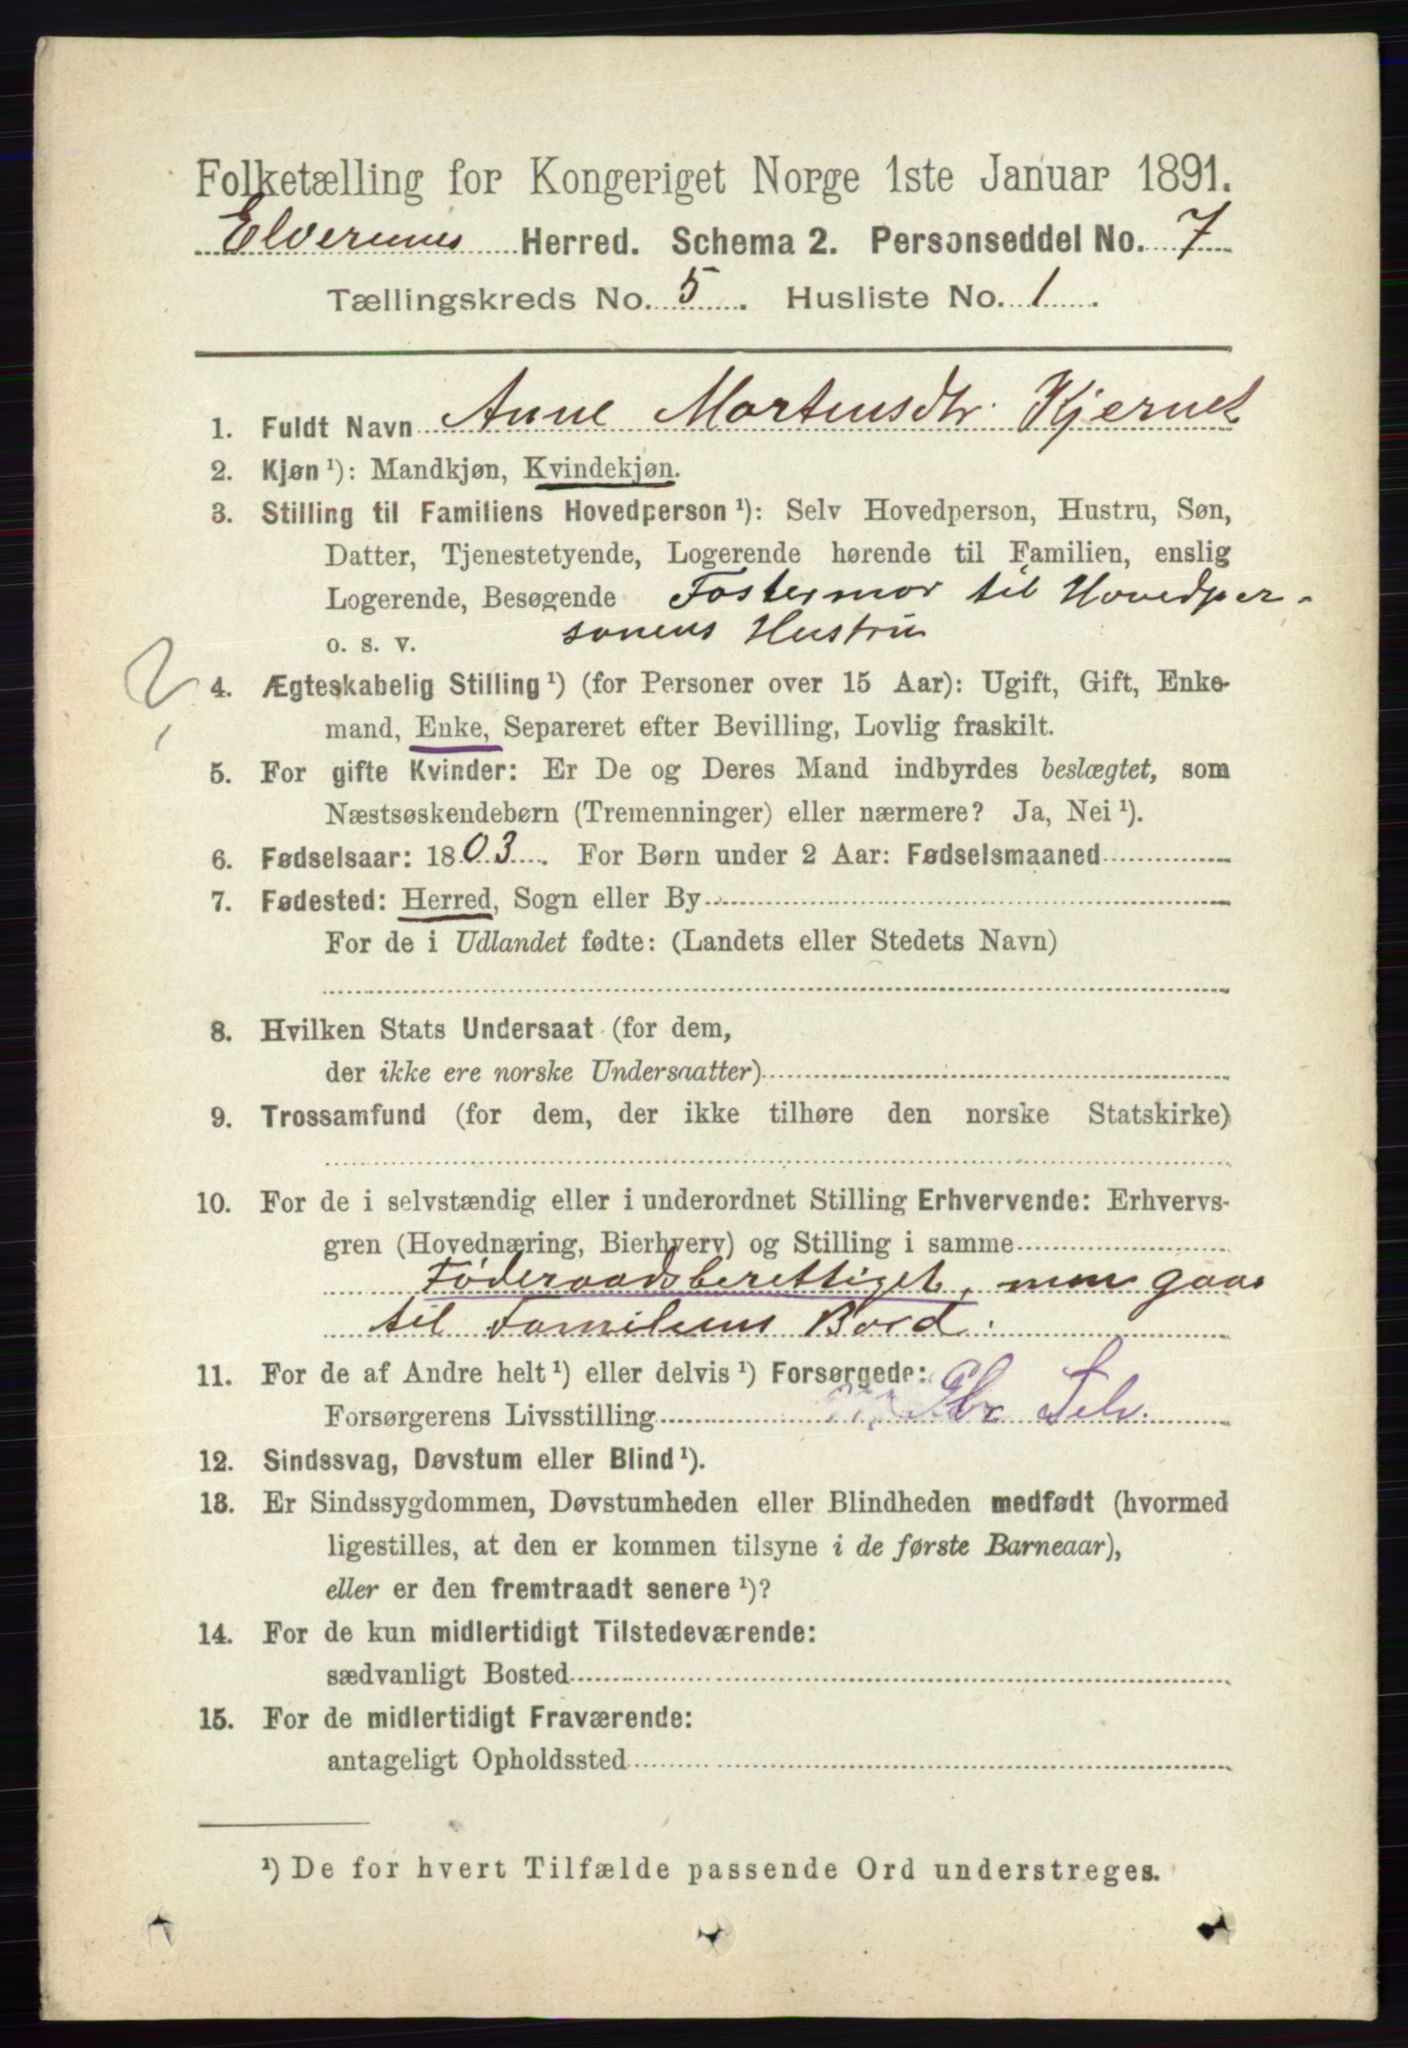 Folketælling for Kongeriget Norge 1ste Januar 1891.
Elverums Herred. Schema 2. Personseddel No. 7
Tællingskreds No. 5. Husliste No. 1.
1. Fuldt Navn Anne Mortensdtr. Kjernet
2. Kjøn ¹): Mandkjøn, Kvindekjøn.
3. Stilling til Familiens Hovedperson ¹): Selv Hovedperson, Hustru, Søn,
Datter, Tjenestetyende, Logerende hørende til Familien, enslig
Logerende, Besøgende Fostermor til Hovedper-
o. s. v. sonens Hustru
4. Ægteskabelig Stilling ¹) (for Personer over 15 Aar): Ugift, Gift, Enke-
mand, Enke, Separeret efter Bevilling, Lovlig fraskilt.
5. For gifte Kvinder: Er De og Deres Mand indbyrdes beslægtet, som
Næstsøskendebørn (Tremenninger) eller nærmere? Ja, Nei ¹).
6. Fødselsaar: 1803. For Børn under 2 Aar: Fødselsmaaned
7. Fødested: Herred, Sogn eller By
For de i Udlandet fødte: (Landets eller Stedets Navn)
8. Hvilken Stats Undersaat (for dem,
der ikke ere norske Undersaatter)
9. Trossamfund (for dem, der ikke tilhøre den norske Statskirke)
10. For de i selvstændig eller i underordnet Stilling Erhvervende: Erhvervs-
gren (Hovednæring, Bierhverv) og Stilling i samme
Føderaadsberettiget, men gaar
til Familiens Bord.
11. For de af Andre helt ¹) eller delvis ¹) Forsørgede:
Forsørgerens Livsstilling Gbr Selv.
12. Sindssvag, Døvstum eller Blind ¹).
13. Er Sindssygdommen, Døvstumheden eller Blindheden medfødt (hvormed
ligestilles, at den er kommen tilsyne i de første Barneaar),
eller er den fremtraadt senere ¹)?
14. For de kun midlertidigt Tilstedeværende:
sædvanligt Bosted
15. For de midlertidigt Fraværende:
antageligt Opholdssted
¹) De for hvert Tilfælde passende Ord understreges.